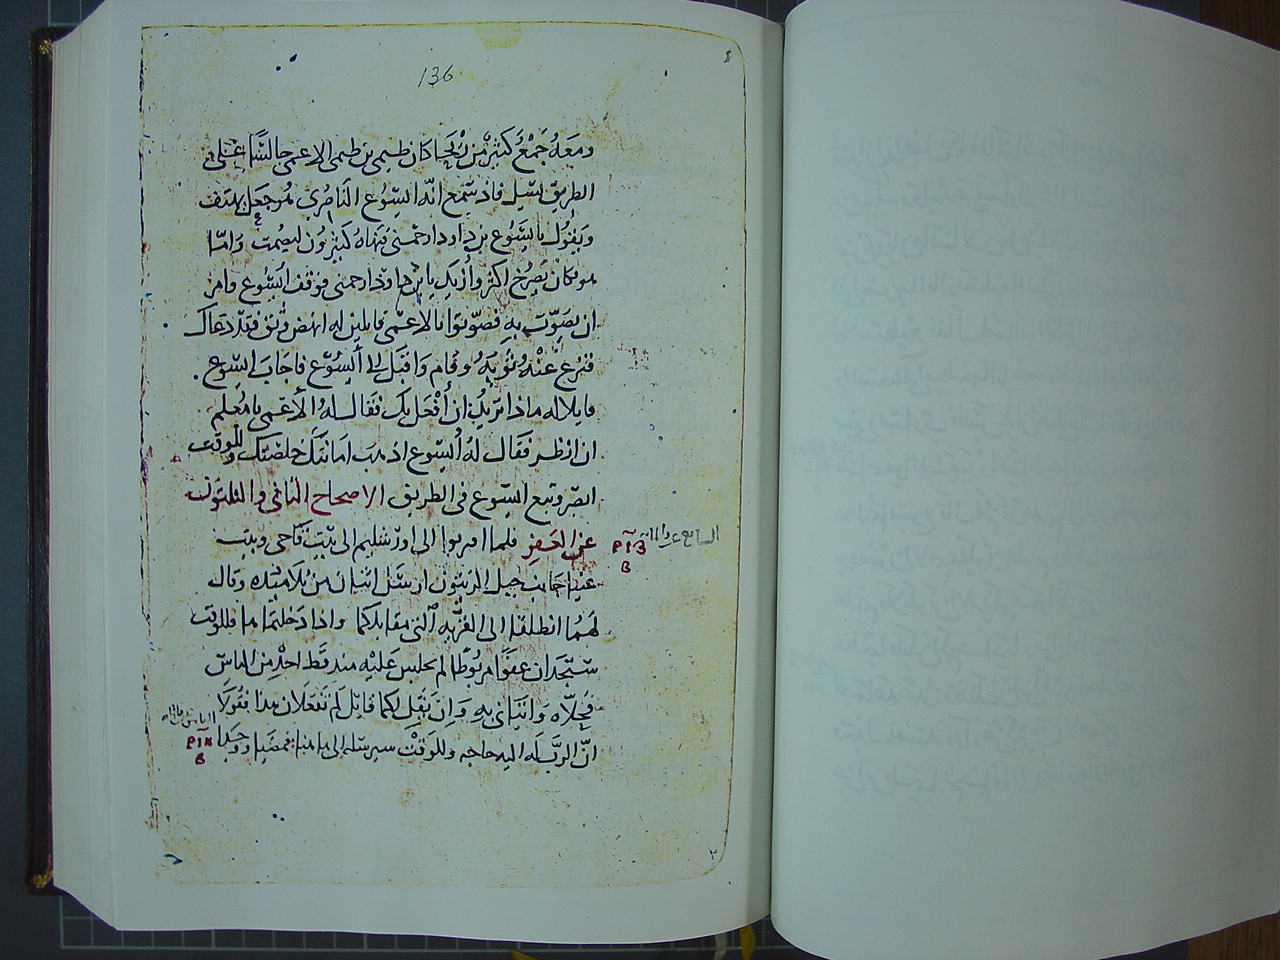 136
ومعه جمع كثير من يريحا كان طيمي بن طيمي الاعمى جالسًا على
الطريق يسيل فاذ سمع انه ايسوع الناصري فجعل يهتف
ويقول يايسوع بن داود ارحمني فنهاه كثيرون ليصمت وامّا
هو فكان يصرخ اكثر وأزيد يا بن داود ارحمني فوقف ايسوع وامر
ان يصوّت به فصوّتوا بالاعمى قايلين له انهض وثق فقد دعاك
فنزع عنه ثوبه وقام واقبل الى أيسُوع فاجاب ايسوع
قايلا له ماذا تريد ان أفعل بك فقال له الأعمى يا معلم
ان انظر فقال له أيسوع اذهب امانتك خلصتك وللوقت
ابصر وتبع ايسوع في الطريق الاصحاح الثاني والثلثون
عن العفو فلما اقربوا الى اورشليم الى بيت فاجي وبيت
عنيا جانب جبل الزيتون ارسل اثنان من تلاميذه وقال
لهما انطلقا الى القرية التي مقابلكما واذا دخلتما ها فللوقت
ستجدان عفوًا مربوطًا لم يجلس عليه منذ قط احد من الناس
فحلاه واتيانى به وان يقل لكما قايل لم تفعلان هذا فقولا
انّ الربّ له اليه حاجه وللوقت سيرسله الى هاهنا فمضيا ووجدا